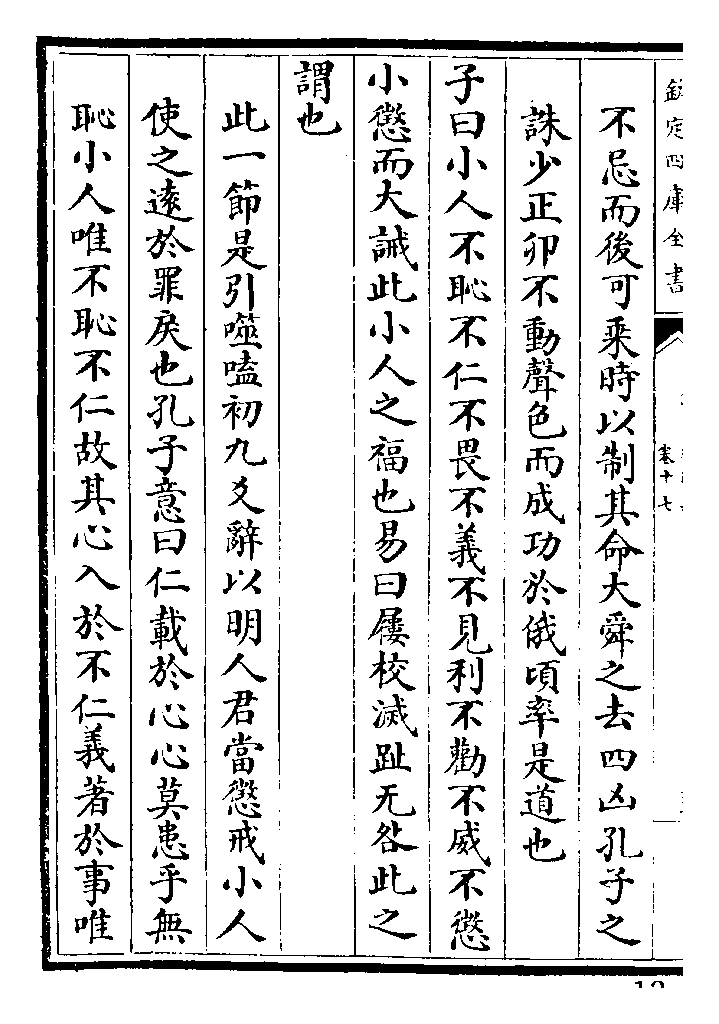 欽定四庫全書
卷十七
不忌而後可乘時以制其命大舜之去四凶孔子之
誅少正卯不動聲色而成功於俄頃率是道也
子曰小人不恥不仁不畏不義不見利不勸不威不懲
小懲而大誡此小人之福也易曰屨校滅趾无咎此之
謂也
此一節是引噬嗑初九爻辭以明人君當懲戒小人
使之遠於罪戾也孔子意曰仁載於心心莫患乎無
恥小人唯不恥不仁故其心入於不仁義著於事唯